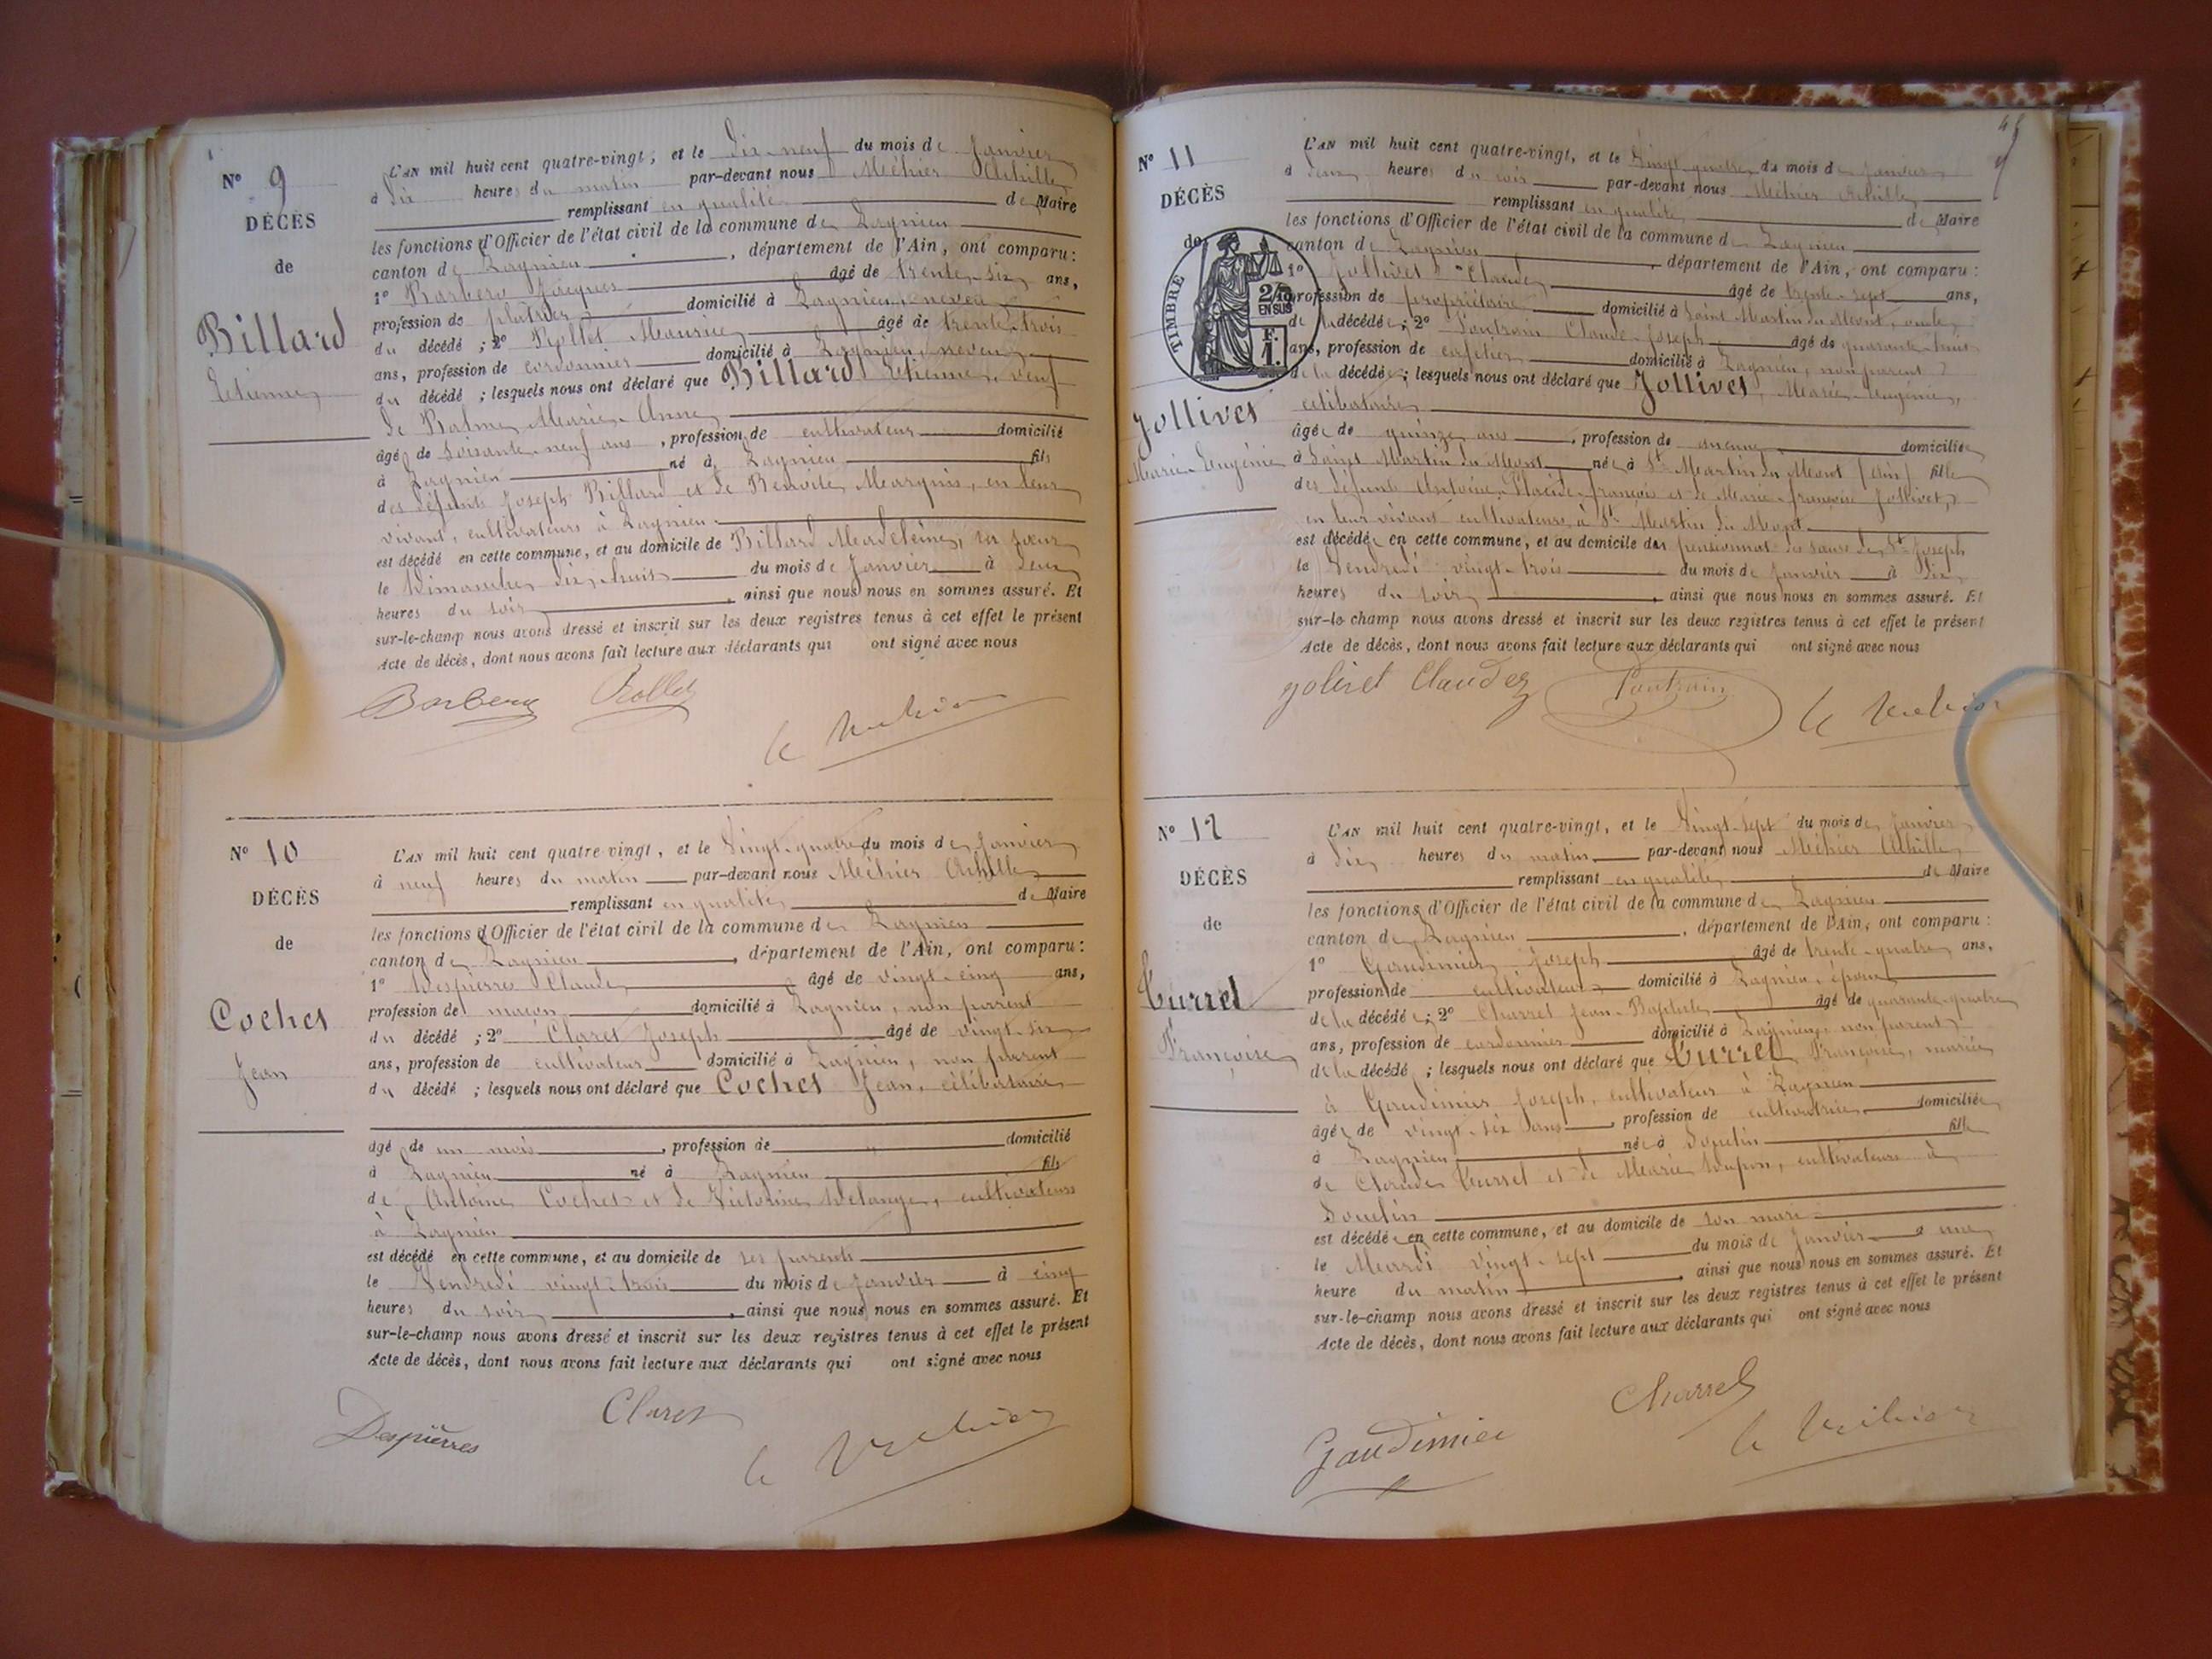 N° 9
DÉCÈS
de
Billard
Etienne
L'AN mil huit cent quatre-vingt, et le dix-neuf du mois de Janvier
à dix heures du matin par-devant nous Méhier Achille
remplissant en qualité de Maire
les fonctions d'Officier de l'état civil de la commune de Lagnieu
canton de Lagnieu, département de l'Ain, ont comparu :
1° Barbero Jacques âgé de trente-six ans,
profession de plâtrier domicilié à Lagnieu, neveu
du décédé ; 2° Rollet Maurice âgé de trente-trois
ans, profession de cordonnier domicilié à Lagnieu, neveu
du décédé ; lesquels nous ont déclaré que Billard Etienne, veuf
de Balme Marie-Anne
âgé de soixante-neuf ans, profession de cultivateur domicilié
à Lagnieu né à Lagnieu fils
des défunts Joseph Billard et de Benoite Marquis, en leur
vivant, cultivateurs à Lagnieu.
est décédé en cette commune, et au domicile de Billard Madeleine, sa sœur
le Dimanche dix-huit du mois de Janvier à deux
heures du soir, ainsi que nous nous en sommes assuré. Et
sur-le-champ nous avons dressé et inscrit sur les deux registres tenus à cet effet le présent
Acte de décès, dont nous avons fait lecture aux déclarants qui ont signé avec nous
Barbero Rollet
A Méhier
N° 10
DÉCÈS
de
Cochet
Jean
L'AN mil huit cent quatre-vingt, et le Vingt-quatre du mois de Janvier
à neuf heures du matin par-devant nous Méhier Achille
remplissant en qualité de Maire
les fonctions d'Officier de l'état civil de la commune de Lagnieu
canton de Lagnieu, département de l'Ain, ont comparu :
1° Despierres Claude âgé de vingt-cinq ans,
profession de maçon domicilié à Lagnieu, non parent
du décédé ; 2° Claret Joseph âgé de vingt-six
ans, profession de cultivateur domicilié à Lagnieu, non parent
du décédé ; lesquels nous ont déclaré que Cochet Jean, célibataire
âgé de un mois, profession de domicilié
à Lagnieu né à Lagnieu fils
de Antoine Cochet et de Victorine Delange, cultivateurs
à Lagnieu
est décédé en cette commune, et au domicile de ses parents
le Vendredi vingt-trois du mois de Janvier à cinq
heures du soir, ainsi que nous nous en sommes assuré. Et
sur-le-champ nous avons dressé et inscrit sur les deux registres tenus à cet effet le présent
Acte de décès, dont nous avons fait lecture aux déclarants qui ont signé avec nous
Despierres Claret
A Méhier
N° 11
DÉCÈS
de
TIMBRE
2/10
EN SUS
F.
1.
Jollivet
Marie-Eugénie
L'AN mil huit cent quatre-vingt, et le Vingt-quatre du mois de Janvier
à deux heures du soir par-devant nous Méhier Achille
remplissant en qualité de Maire
les fonctions d'Officier de l'état civil de la commune de Lagnieu
canton de Lagnieu, département de l'Ain, ont comparu :
1° Jollivet Claude âgé de trente-sept ans,
profession de propriétaire domicilié à Saint Martin du Mont, oncle
de la décédée ; 2° Pontrain Claude-Joseph âgé de quarante-huit
ans, profession de cafetier domicilié à Lagnieu, non parent
de la décédée ; lesquels nous ont déclaré que Jollivet Marie-Eugénie,
célibataire
âgée de quinze ans, profession de aucune domiciliée
à Saint Martin du Mont née à St Martin du Mont (Ain) fille
des défunts Antoine-Placide-François et de Marie-Françoise Jollivet,
en leur vivant cultivateurs à St Martin du Mont.
est décédée en cette commune, et au domicile du pensionnat des sœurs de St Joseph
le Vendredi vingt-trois du mois de Janvier à dix
heures du soir, ainsi que nous nous en sommes assuré. Et
sur-le champ nous avons dressé et inscrit sur les deux registres tenus à cet effet le présent
Acte de décès, dont nous avons fait lecture aux déclarants qui ont signé avec nous
Jolivet Claude Pontrain A Méhier
N° 12
DÉCÈS
de
Curret
Françoise
L'AN mil huit cent quatre-vingt, et le Vingt-sept du mois de Janvier
à dix heures du matin par-devant nous Méhier Achille
remplissant en qualité de Maire
les fonctions d'Officier de l'état civil de la commune de Lagnieu
canton de Lagnieu, département de l'Ain, ont comparu :
1° Gaudimier Joseph âgé de trente-quatre ans,
profession de cultivateur domicilié à Lagnieu, époux
de la décédée ; 2° Charrel Jean-Baptiste âgé de quarante-quatre
ans, profession de cordonnier domicilié à Lagnieu, non parent
de la décédée ; lesquels nous ont déclaré que Curret Françoise, mariée
à Gaudimier Joseph, cultivateur à Lagnieu
âgée de vingt-six ans, profession de cultivatrice domiciliée
à Lagnieu née à Souclin fille
de Claude Curret et de Marie Dupon, cultivateurs à
Souclin
est décédée en cette commune, et au domicile de son mari
le Mardi vingt-sept du mois de Janvier à une
heure du matin, ainsi que nous nous en sommes assuré. Et
sur-le-champ nous avons dressé et inscrit sur les deux registres tenus à cet effet le présent
Acte de décès, dont nous avons fait lecture aux déclarants qui ont signé avec nous
Charrel
Gaudimier A Méhier